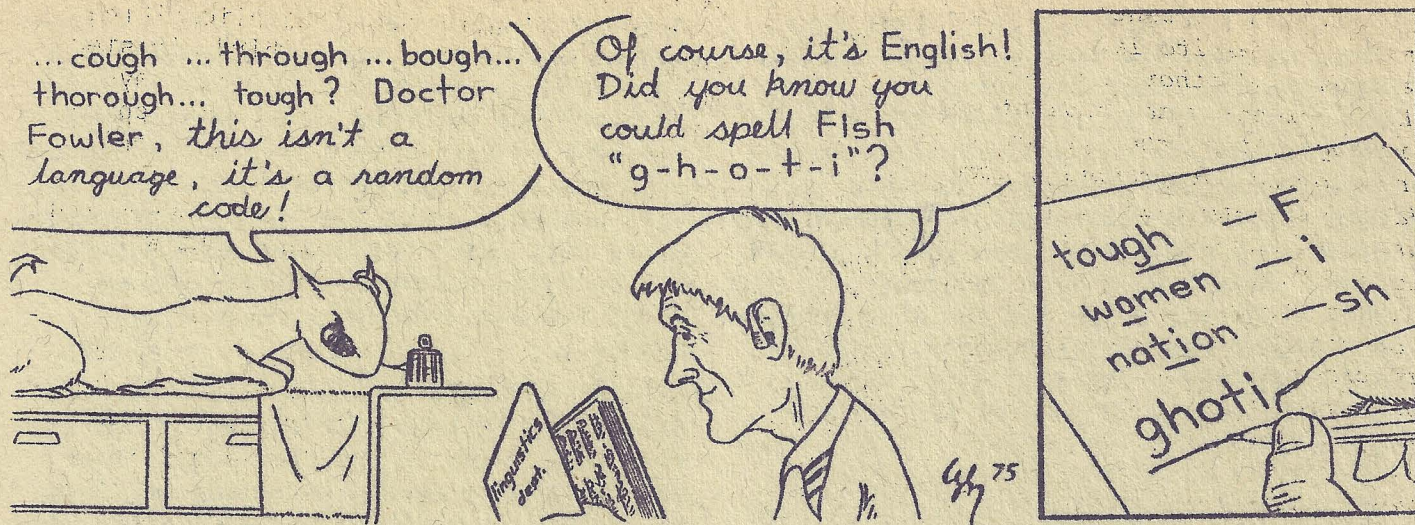 ...cough ...through ...bough...
thorough... tough? Doctor
Fowler, this isn't a
language, it's a random
code!
Of course, it's English!
Did you know you
could spell FIsh
"g-h-o-t-i"?
linguistics
dept.
75
tough — F
women — i
nation — sh
ghoti